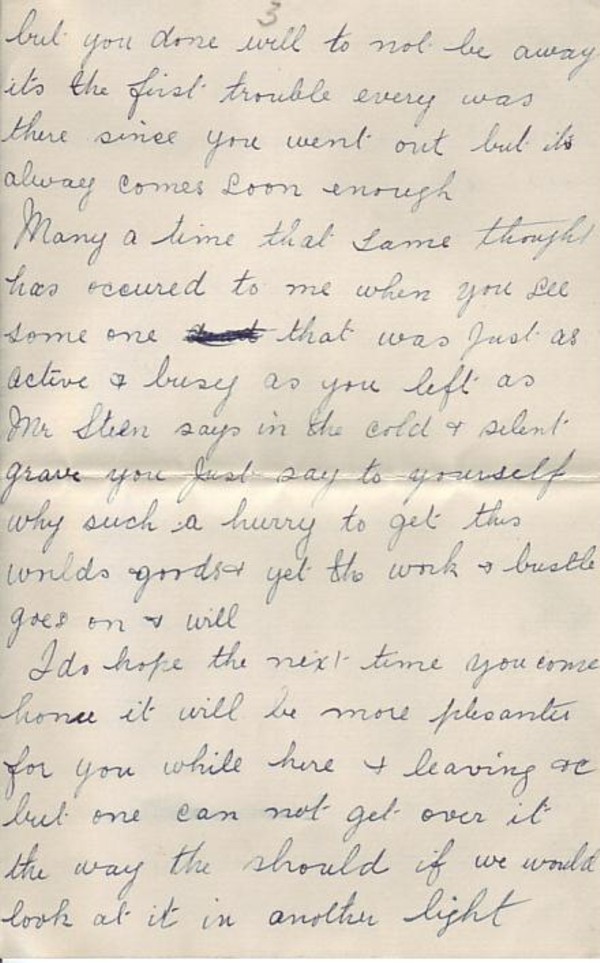 3
but you done well to not be away
its the first trouble every was
there since you went out but its
alway comes soon enough
Many a time that same thought
has occured to me when you see
some one that was just as
active & busy as you left as
Mr Steen says in the cold & silent
grave you just say to yourself
why such a hurry to get this
worlds goods & yet the work & bustle
goes on & will
I do hope the next time you come
home it will be more plesanter
for you while here & leaving &c
but one can not get over it
the way the should if we would
look at it in another light